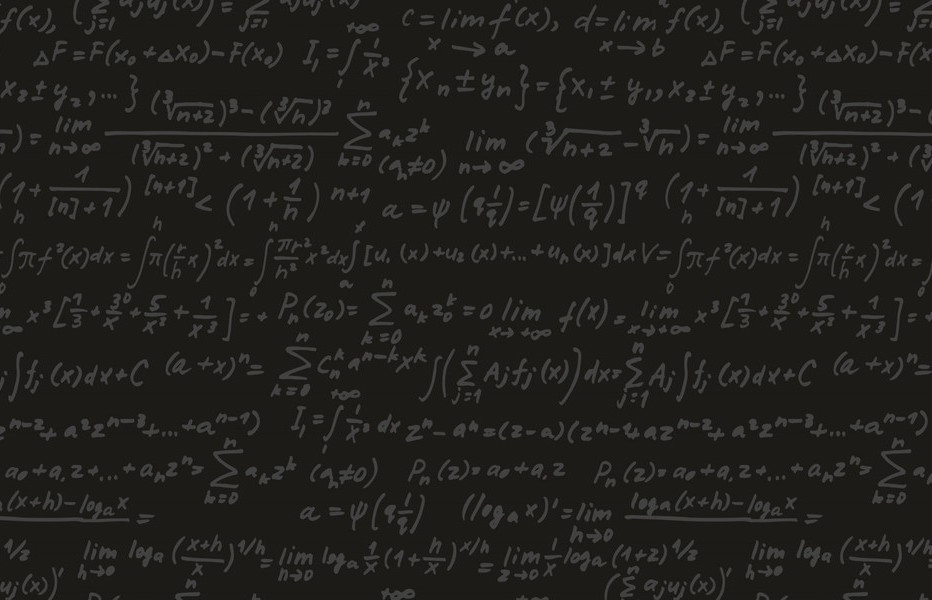 f(x), (∑ j=1 ajuj(x))' c = lim x→a f(x), d = lim x→b f(x), (∑ j=1 ajuj(x))'
ΔF = F(x₀ + Δx₀) − F(x₀) I₁ = ∫₁^{+∞} 1/x³ ΔF = F(x₀ + Δx₀) − F(x
x₂ ± y₂, ... } {xₙ ± yₙ} = {x₁ ± y₁, x₂ ± y₂, ... }
) = lim n→∞ ((∛n+2)³ − (∛n)³)/((∛n+2)² + (∛n+2)) ∑ k=0 n aₖzᵏ (aₙ≠0) lim n→∞ (∛n+2 − ∛n) = lim n→∞ ((∛n+2)³ −)/((∛n+2)² + (∛
(1 + 1/([n]+1))ⁿ [n+1] < (1 + 1/n) n+1 a = ψ(q 1/q) = [ψ(1/q)]^q (1 + 1/([n]+1))ⁿ [n+1] < (1
∫₀ʰ πf²(x)dx = ∫₀ʰ π(r/h x)²dx = ∫₀ʰ πr²/h² x²dx ∫ₐˣ [u₁(x)+u₂(x)+...+uₙ(x)]dx V = ∫₀ʰ πf²(x)dx = ∫₀ʰ π(r/h x)²dx =
∞ x³[7/3 + 30/x + 5/x² + 1/x³] = + Pₙ(z₀) = ∑ k=0 n aₖz₀ᵏ = 0 lim x→+∞ f(x) = lim x→+∞ x³[7/3 + 30/x + 5/x² + 1/x³] = +
j ∫fj(x)dx + C (a + x)ⁿ = ∑ k=0 n Cₙᵏ aⁿ⁻ᵏxᵏ ∫(∑ j=1 n Ajfj(x))dx = ∑ j=1 n Aj ∫fj(x)dx + C (a + x)ⁿ =
zⁿ⁻² + a²zⁿ⁻³ + ... + aⁿ⁻¹) I₁ = ∫₁^{+∞} 1/x³ dx zⁿ − aⁿ = (z − a)(zⁿ⁻¹ + azⁿ⁻² + a²zⁿ⁻³ + ... + aⁿ⁻¹)
a₀ + a₁z + ... + aₙzⁿ = ∑ k=0 n aₖzᵏ (aₙ≠0) Pₙ(z) = a₀ + a₁z Pₙ(z) = a₀ + a₁z + ... + aₙzⁿ = ∑ k=0 n a
(x+h) − logₐx = a = ψ(q 1/q) (logₐx)' = lim h→0 (logₐ(x+h) − logₐx) =
1/z lim h→0 logₐ((x+h)/x)^{1/h} = lim h→0 logₐ 1/x (1 + h/x)^{x/h} = lim z→0 1/x logₐ(1+z)^{1/z} lim h→0 logₐ((x+h)/x)^{1/h}
uj(x))' n +∞ (∑ n ajuj(x))' n